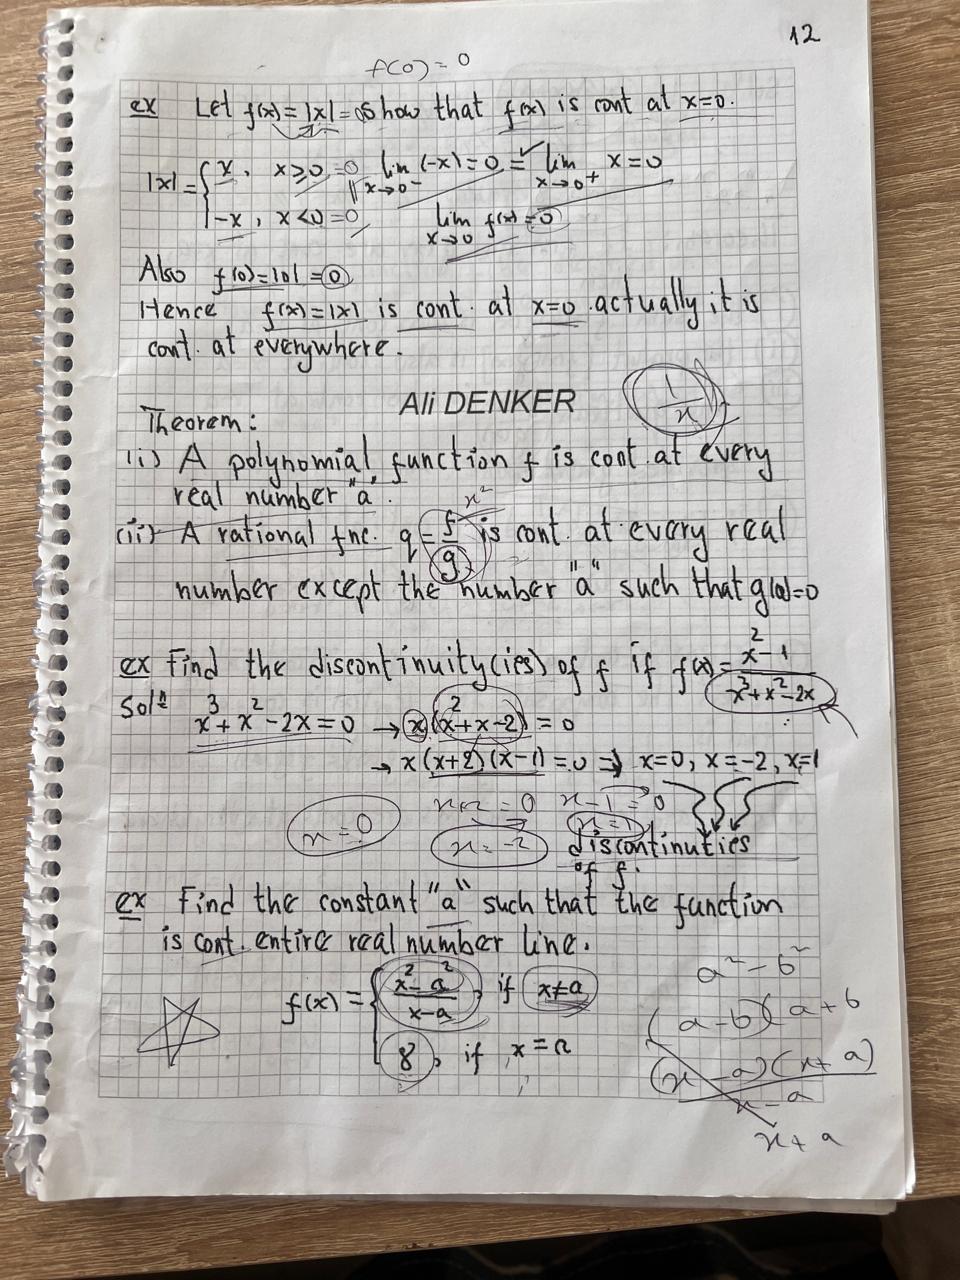 12
f(0) = 0
ex Let f(x) = |x| = 0 show that f(x) is cont at x=0.
|x| = { x, x ≥ 0 = 0 lim x→0⁻ (-x) = 0 = lim x→0⁺ x = 0
-x, x < 0 = 0 lim x→0 f(x) = 0
Also f(0) = |0| = 0
Hence f(x) = |x| is cont. at x=0 . actually it is
cont. at everywhere.
Ali DENKER
1/x
Theorem:
(i) A polynomial function f is cont. at every
real number "a".
x²
(ii) A rational fnc. q = f/g is cont. at every real
number except the number "a" such that g(a)=0
ex Find the discontinuity(ies) of f if f(x) = x²-1 / x³+x²-2x
Soln x³+x²-2x = 0 → x(x²+x-2) = 0
→ x(x+2)(x-1) = 0 ⇒ x=0, x=-2, x=1
x=0 x+2=0 x-1=0
x=-2 x=1 discontinuties
of f.
ex Find the constant "a" such that the function
is cont. entire real number line.
f(x) = { x²-a² / x-a, if x≠a
8, if x=a
a²-b²
(a-b)(a+b)
(x-a)(x+a)
x-a
x+a